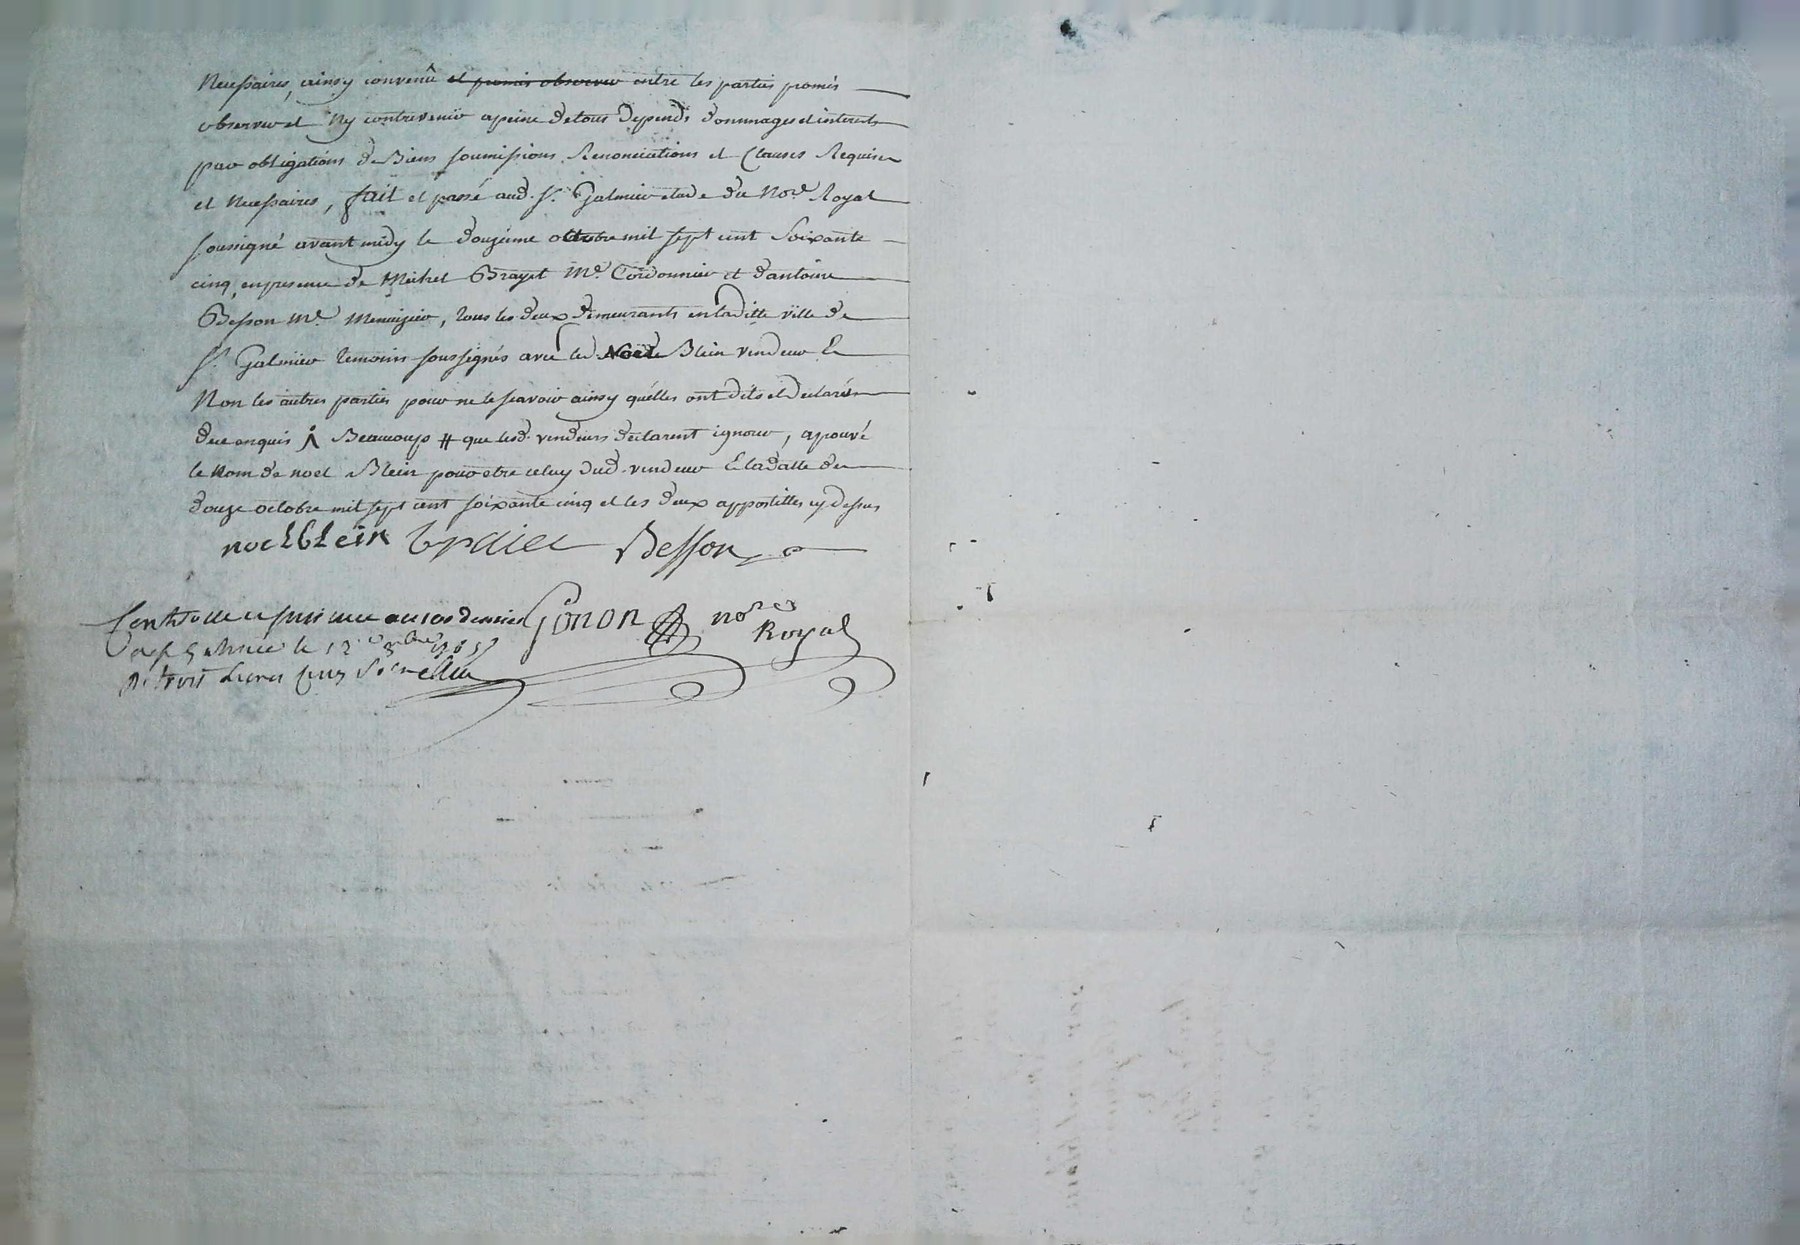 Necessaires, ainsy convenû et promis observer entre les parties promis
observer et Ny contrevenir a peine de tous Depends dommages et interests
par obligations de Biens soumissions Renonciations et Clauses Requises
et Necessaires, fait et passé aud. St. Galmier etude du Nore. Royal
soussigné avant midy le douzieme octobre mil sept cent soixante
cinq, en presence de Michel Brayet Me. Cordonnier et d'antoine
Besson Me. Menuizier, tous les deux demeurants en laditte ville de
St. Galmier temoins soussignés avec led. Noel Blein vendeur &
Non les autres parties pour ne le scavoir ainsy qu'elles ont dits et declarés
de ce enquis Beaucoup # que lesd. vendeurs declarent ignorer, apouvé
le nom de noel Blein pour etre celuy dud. vendeur & la datte du
douze octobre mil sept cent soixante cinq et les deux appostilles cy dessus
noel blein Besson
Ginon nores
Royal
St Galmier le 12